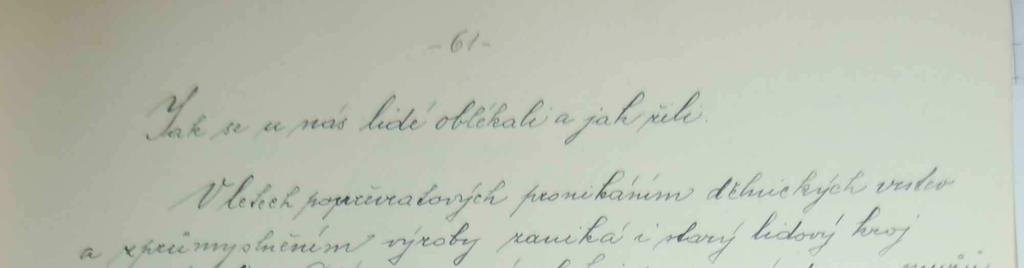 -61-
Jak se u nás lidé oblékali a jak žili.
V letech popřevratových pronikáním dělnických vrstev
a zprůmyslněním výroby zaniká i starý lidový kroj